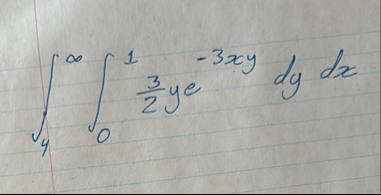 ∫_4^∞ ∫_0^1 3/2 y e^{-3xy} dy dx